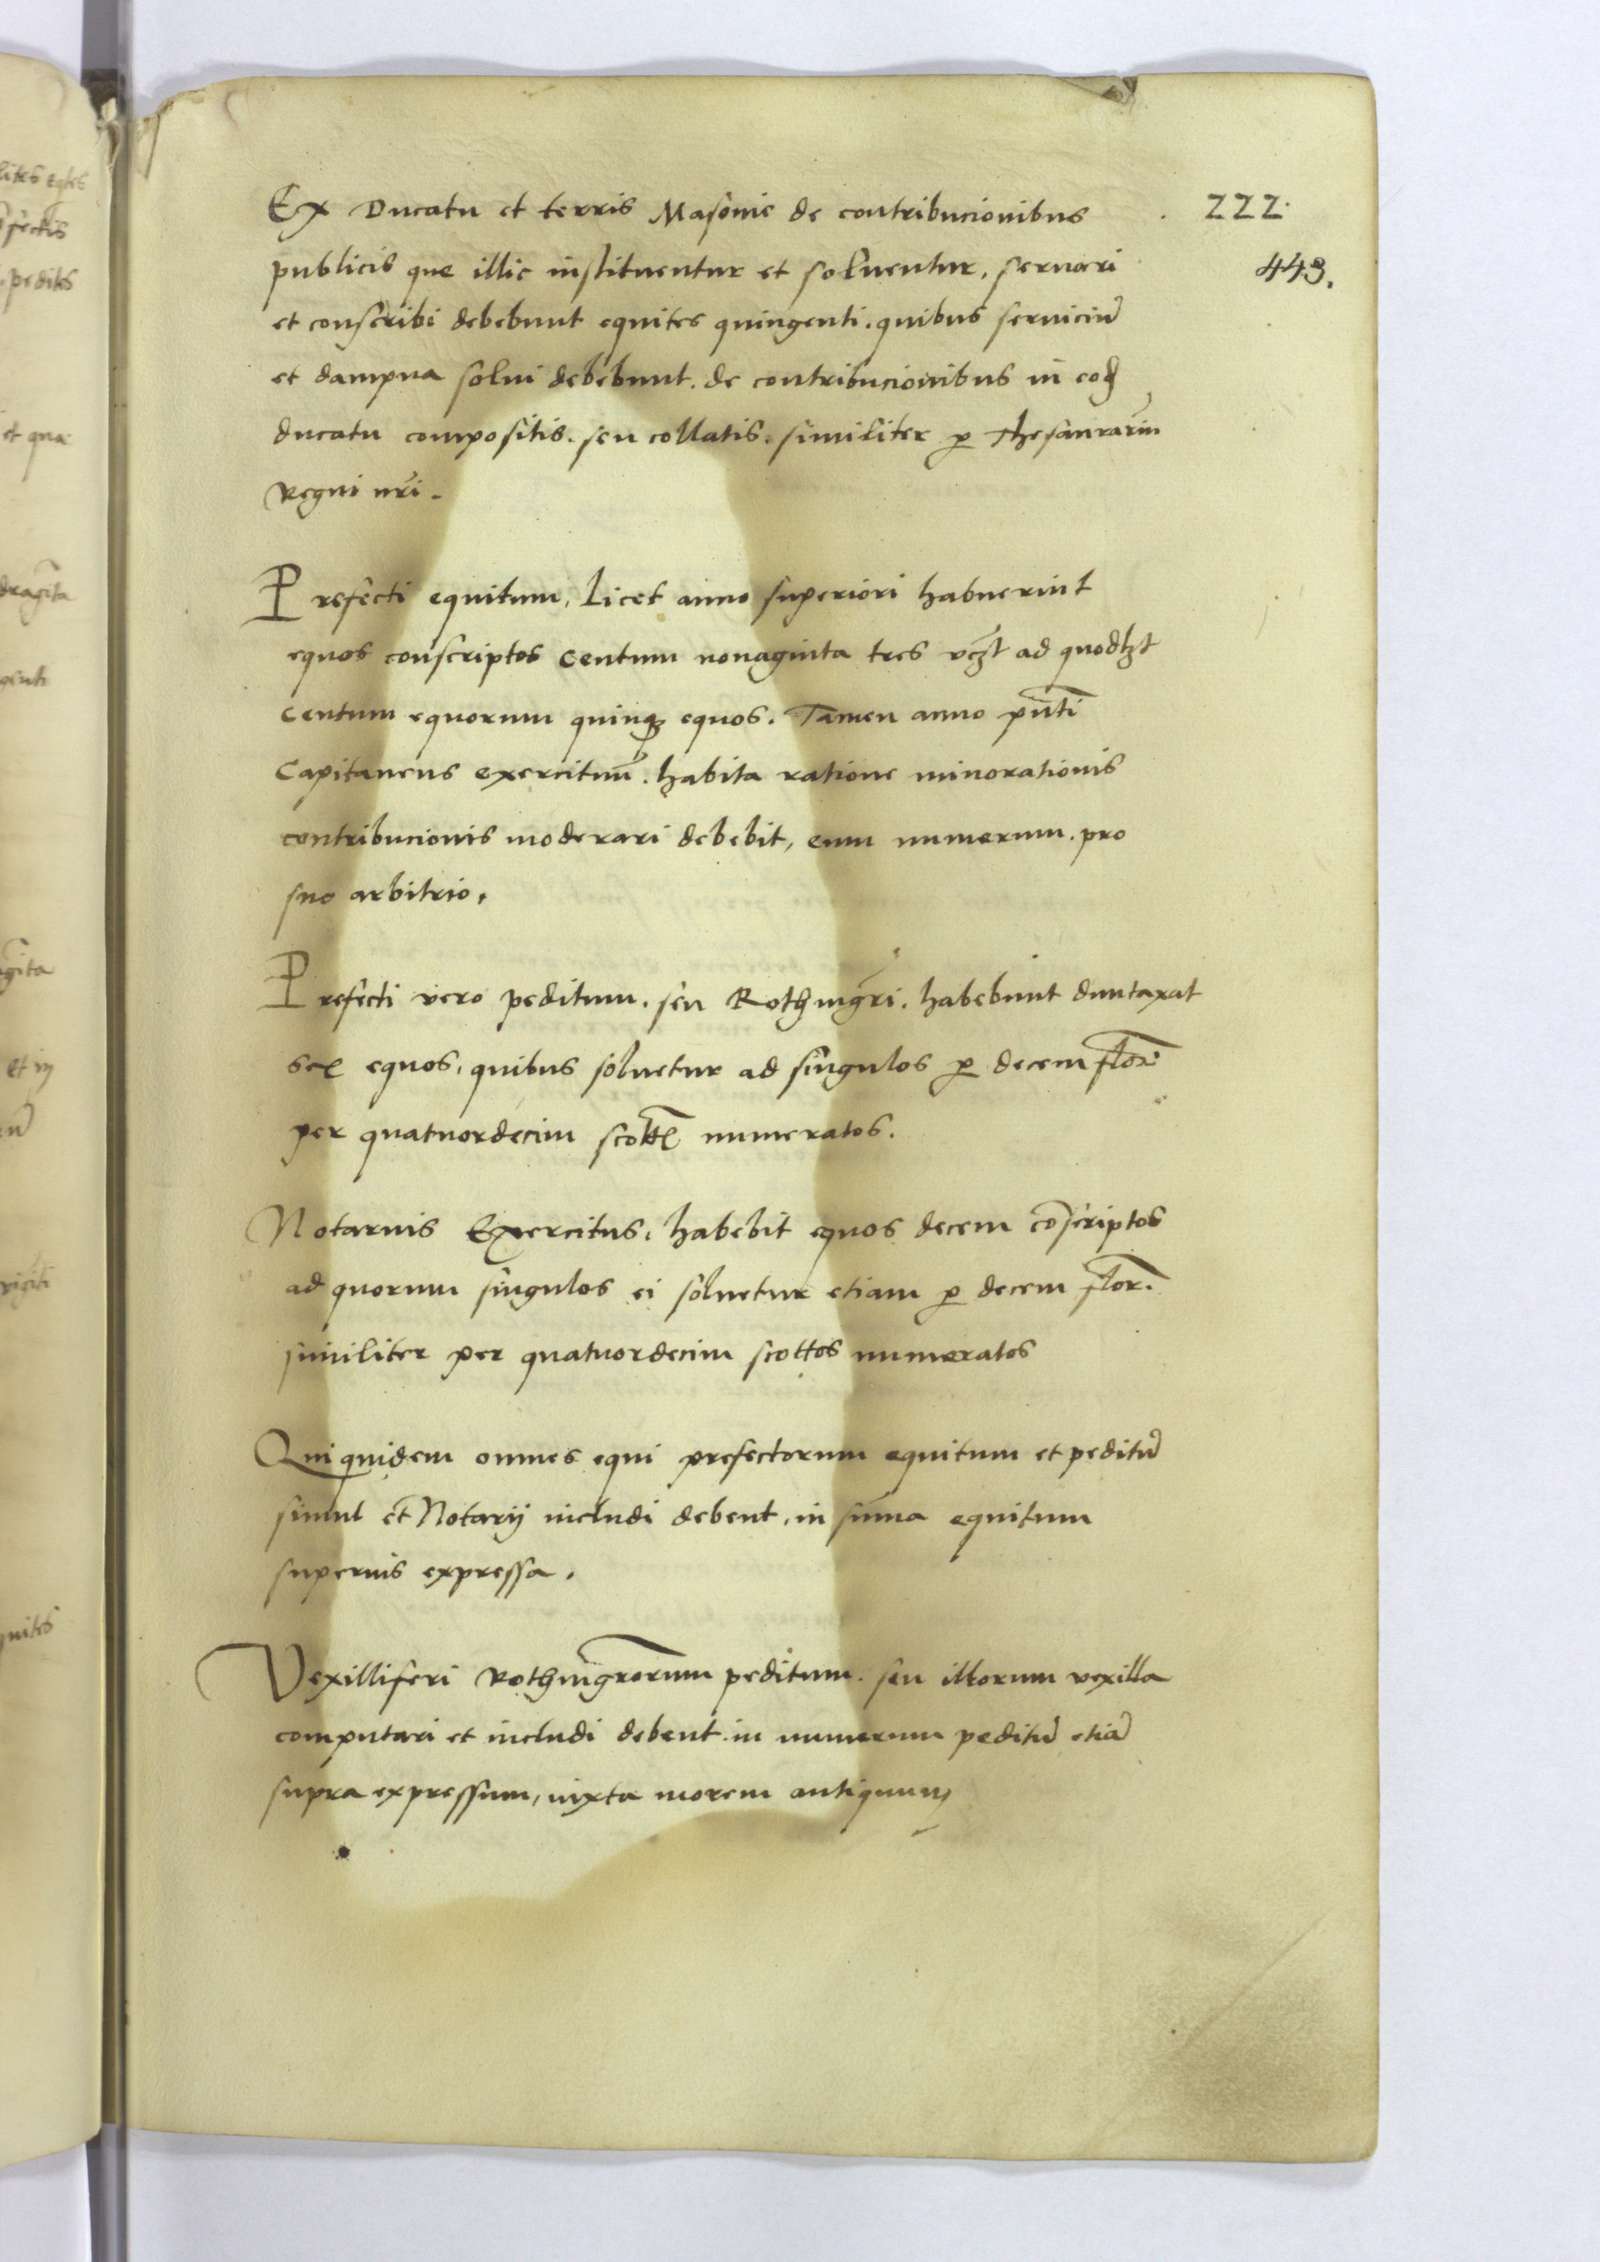 222.
443.
Ex Ducatu et terris Masovie de contribucionibus
publicis que illic instituentur et soluentur, seruari
et conscribi debebunt equites quingenti. quibus serviciū
et dampna solui debebunt. de contribucionibus in eod
ducatu compositis. seu collatis. similiter p Thesaurariū
Regni nrī.
Prefecti equitum, licet anno superiori habuerint
equos conscriptos centum nonaginta tres vczt ad quodlzt
centum equorum quinqz equos. Tamen anno pn̄ti
Capitaneus exercituū. habita ratione minorationis
contribucionis moderari debebit, eum numerum. pro
suo arbitrio.
Prefecti vero peditum. seu Rothmgri. habebunt duntaxat
sex equos, quibus soluetur ad singulos p decem flor.
per quatuordecim scott numeratos.
Notarius Exercitus, habebit equos decem cōscriptos
ad quorum singulos ei soluetur etiam p decem flor.
similiter per quatuordecim scottos numeratos
Quiquidem omnes equi prefectorum equitum et peditū
simul et Notarij includi debent, in sūma equitum
superius expressa.
Vexilliferi Rothmgrorum peditum. seu illorum vexilla
computari et includi debent in numerum peditū etiā
supra expressum, iuxta morem antiquum